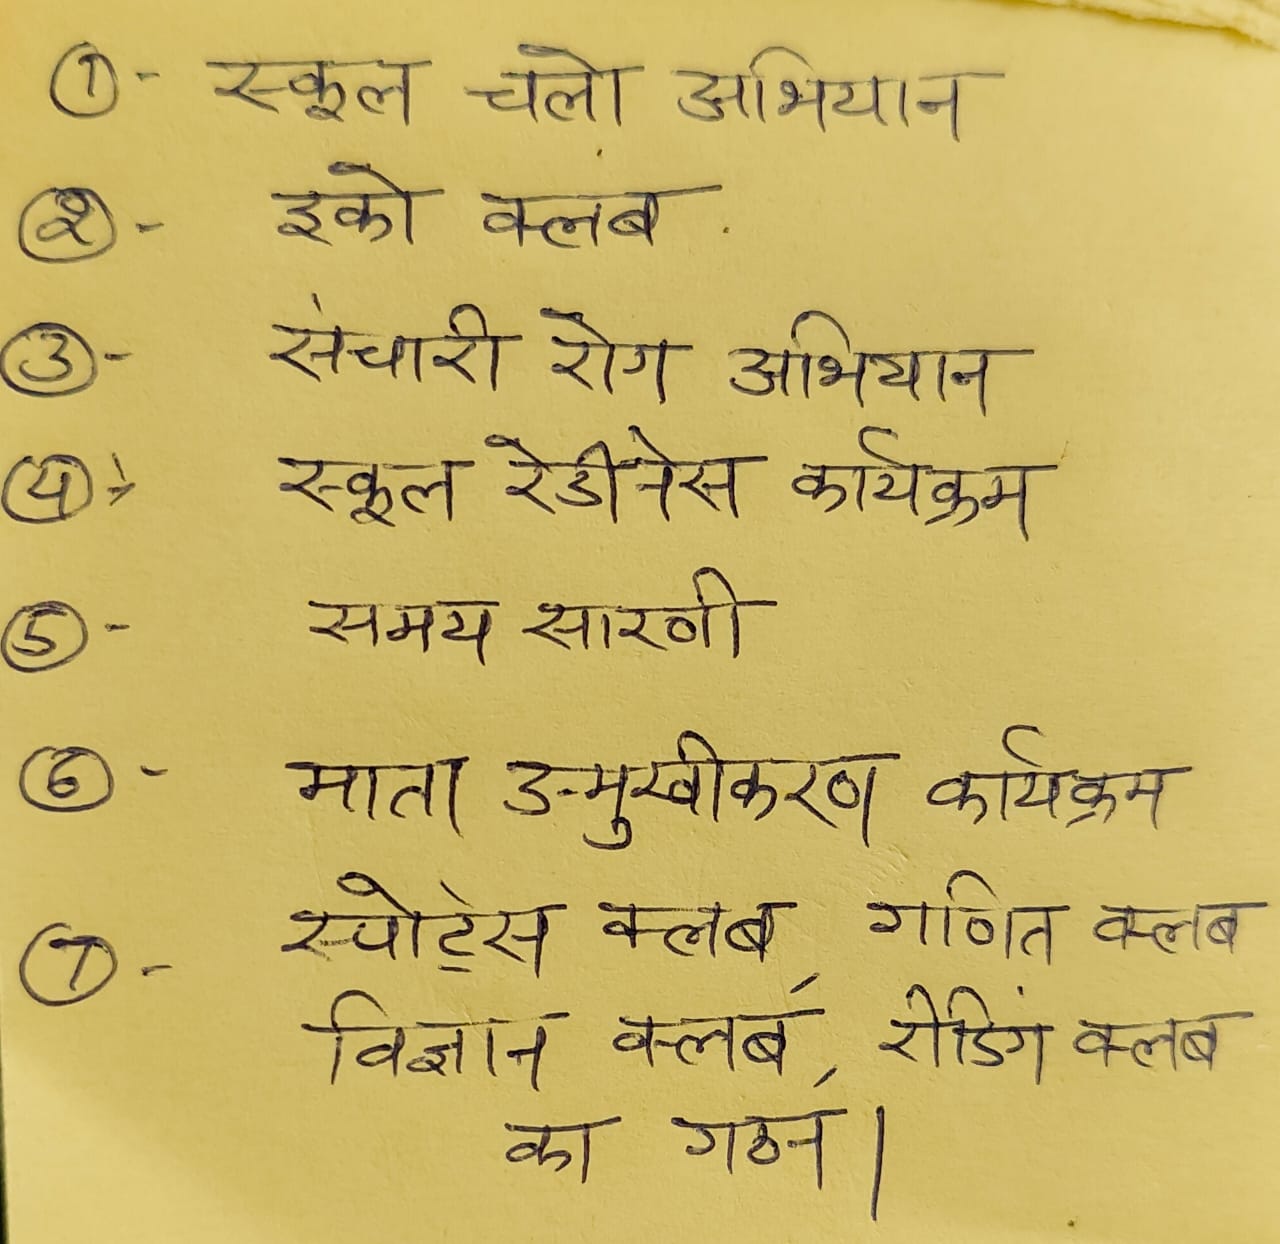 ① - स्कूल चलो अभियान
② - इको क्लब
③ - संचारी रोग अभियान
④ - स्कूल रेडीनेस कार्यक्रम
⑤ - समय सारणी
⑥ - माता उन्मुखीकरण कार्यक्रम
⑦ - स्पोर्ट्स क्लब, गणित क्लब
विज्ञान क्लब, रीडिंग क्लब
का गठन।